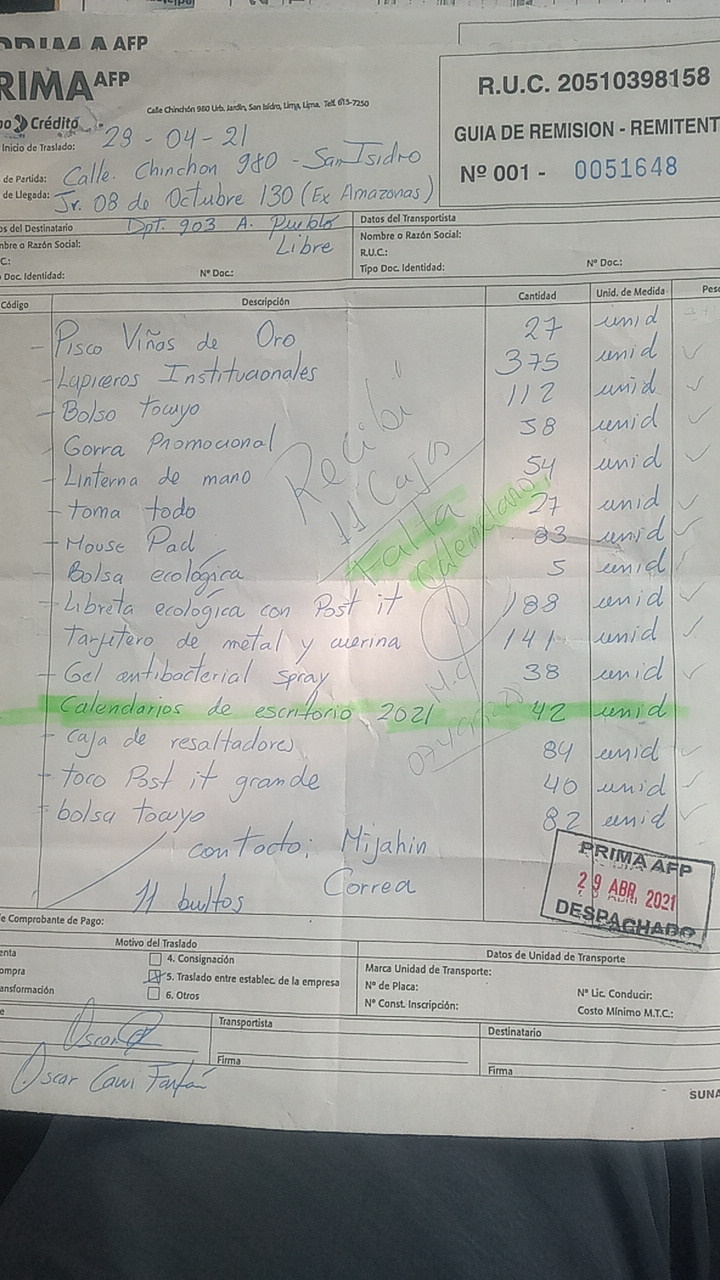 PRIMA AFP
RIMA AFP
Crédito
Calle Chinchón 980 Urb. Jardín, San Isidro, Lima, Lima. Telf. 615-7250
R.U.C. 20510398158
GUIA DE REMISION - REMITENT
Nº 001 - 0051648
Inicio de Traslado: 29-04-21
de Partida: Calle. Chinchon 980 - San Isidro
de Llegada: Jr. 08 de Octubre 130 (Ex Amazonas)
os del Destinatario Dpt. 903 A. Pueblo
Libre
mbre o Razón Social:
C.:
Doc. Identidad: Nº Doc.:
Datos del Transportista
Nombre o Razón Social:
R.U.C.:
Tipo Doc. Identidad: Nº Doc.:
Código Descripción Cantidad Unid. de Medida Peso
- Pisco Viñas de Oro 27 unid
- Lapiceros Institucionales 375 unid
- Bolso tocuyo 112 unid
- Gorra Promocional 58 unid
- Linterna de mano 54 unid
- toma todo 27 unid
- Mouse Pad 33 unid
- Bolsa ecológica 5 unid
- Libreta ecológica con Post it 188 unid
- Tarjetero de metal y cuerina 141 unid
- Gel antibacterial Spray 38 unid
Calendarios de escritorio 2021 42 unid
- Caja de resaltadores 84 unid
- taco Post it grande 40 unid
- bolsa tocuyo 82 unid
Recibí
11 Cajas
Falta
Calendario
M.C
contacto: Mijahin
Correa
11 bultos
PRIMA AFP
29 ABR. 2021
DESPACHADO
e Comprobante de Pago:
Motivo del Traslado
enta
ompra
ansformación
4. Consignación
5. Traslado entre establec. de la empresa
6. Otros
Datos de Unidad de Transporte
Marca Unidad de Transporte:
Nº de Placa:
Nº Const. Inscripción:
Nº Lic. Conducir:
Costo Mínimo M.T.C.:
Transportista
Firma
Destinatario
Firma
Oscar
Oscar Cawi Farfán
SUNA